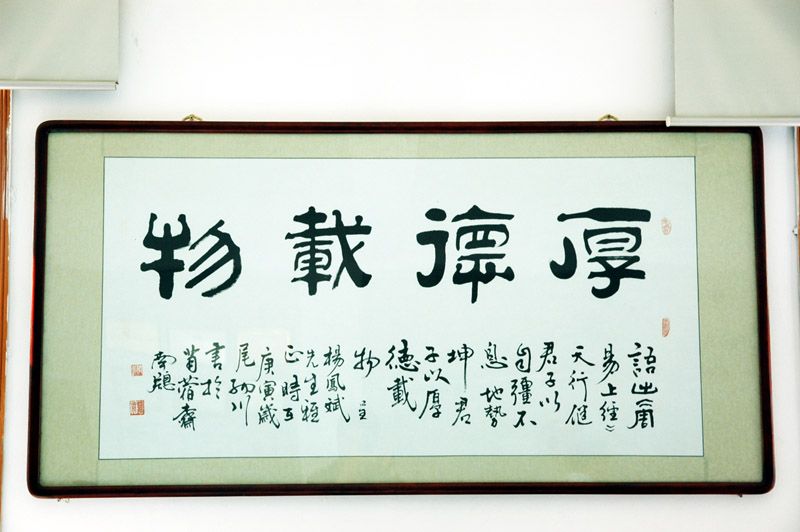 厚德載物
語出周
易上經》
天行健
君子以
自彊不
息地勢
坤君
子以厚
德載
物
楊鳳斌
先生雅
正時在
庚寅歲
尾
書於
齋
南窗